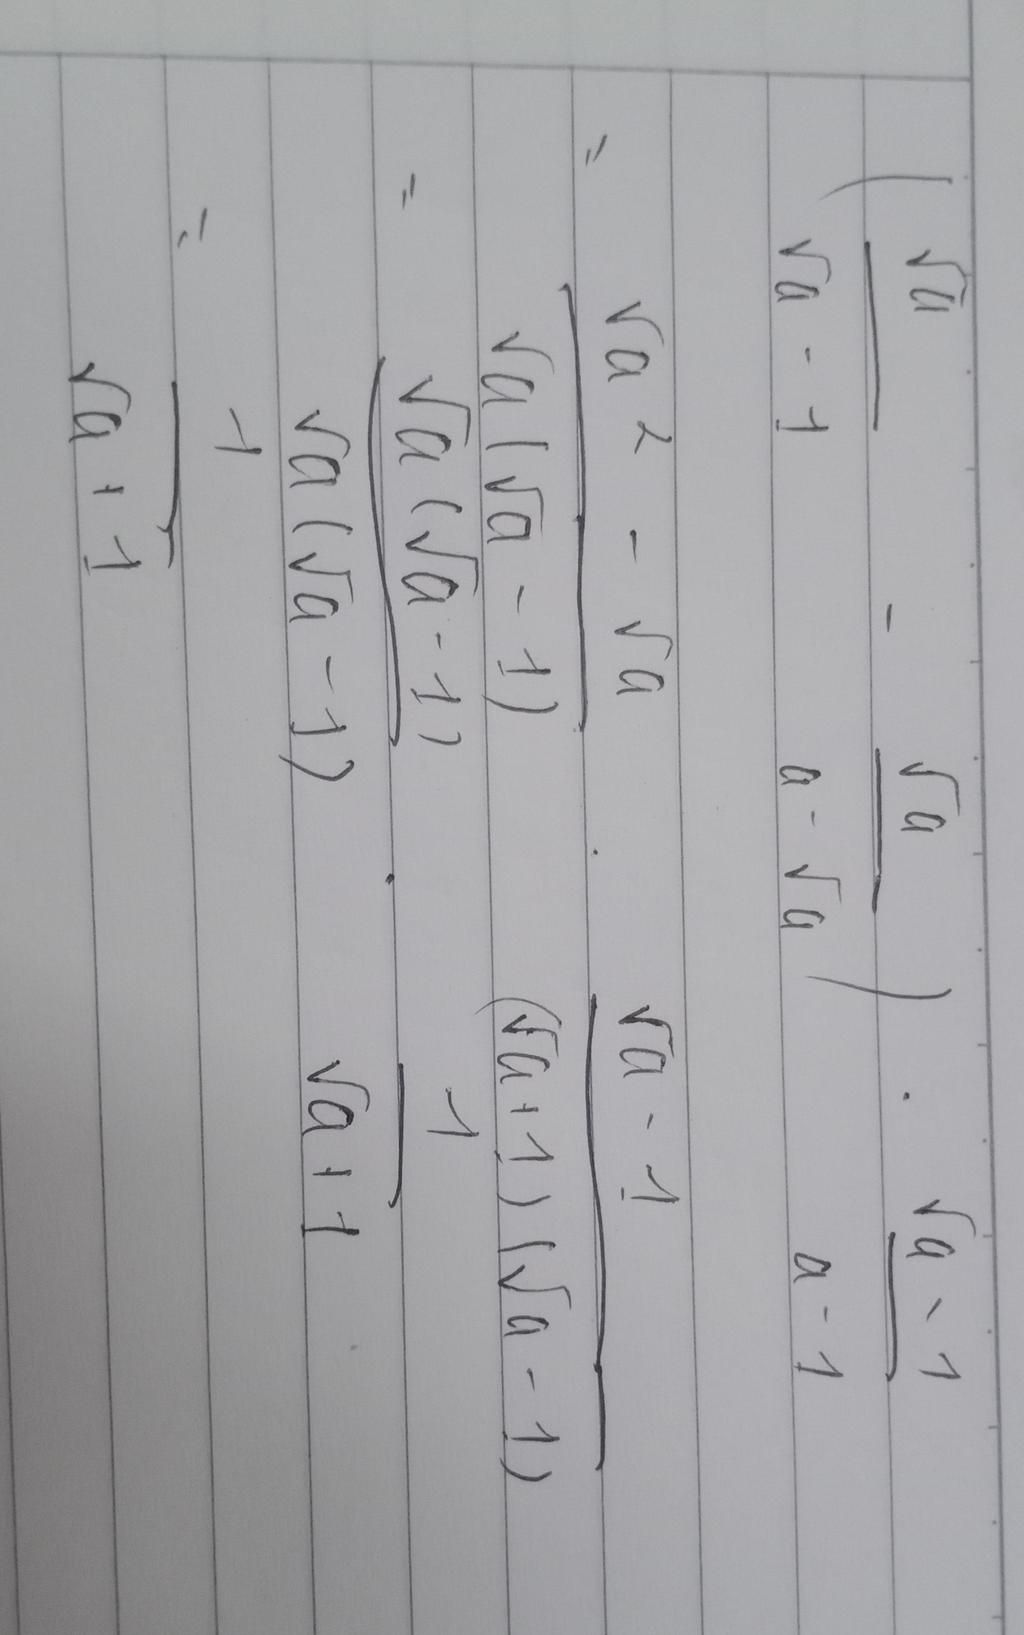 ( √a / √a - 1 - √a / a - √a ) . √a - 1 / a - 1
= √a² - √a / √a(√a - 1) . √a - 1 / (√a + 1)(√a - 1)
= √a(√a - 1) / √a(√a - 1) . 1 / √a + 1
= 1 / √a + 1